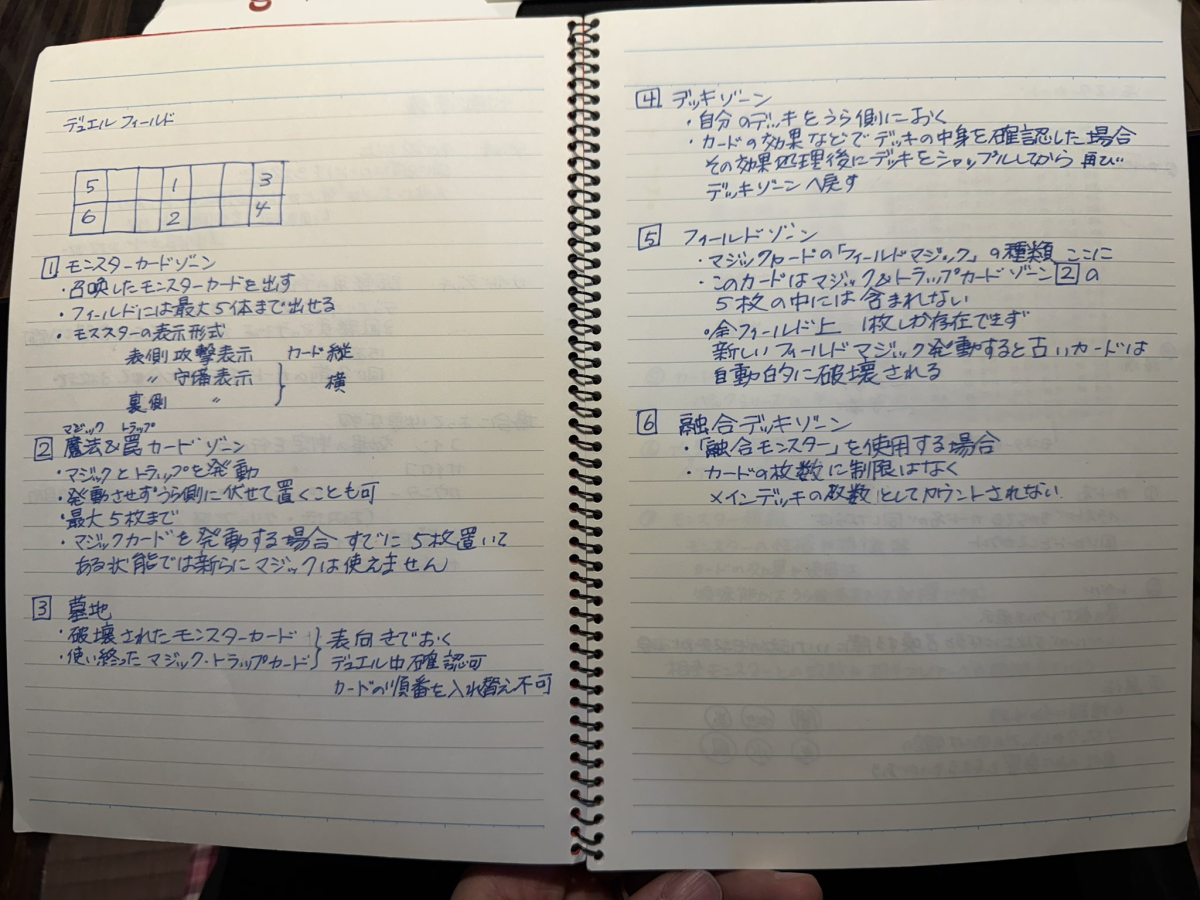 デュエル フィールド
5 1 3
6 2 4
1 モンスターカードゾーン
・召喚したモンスターカードを出す
・フィールドには最大5体まで出せる
・モススターの表示形式
表側攻撃表示 カード縦
〃 守備表示 } 横
裏側 〃
マジック トラップ
2 魔法&罠カードゾーン
・マジックとトラップを発動
・発動させずうら側に伏せて置くことも可
・最大5枚まで
・マジックカードを発動する場合 すでに5枚置いて
ある状態では新らにマジックは使えません
3 墓地
・破壊されたモンスターカード } 表向きでおく
・使い終ったマジック・トラップカード デュエル中確認可
カードの順番を入れ替え不可
4 デッキゾーン
・自分のデッキをうら側におく
・カードの効果などでデッキの中身を確認した場合
その効果処理後にデッキをシャップルしてから再び
デッキゾーンへ戻す
5 フィールドゾーン
・マジックカードの「フィールドマジック」の種類 ここに
・このカードはマジック&トラップカードゾーン2の
5枚の中には含まれない
・全フィールド上 1枚しか存在できず
新しいフィールドマジック発動すると古いカードは
自動的に破壊される
6 融合デッキゾーン
・「融合モンスター」を使用する場合
・カードの枚数に制限はなく
メインデッキの枚数としてカウントされない